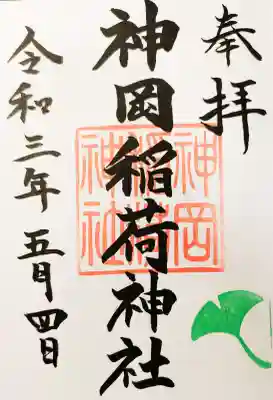 奉拝
神岡稲荷神社
神岡稲荷神社
令和三年五月四日